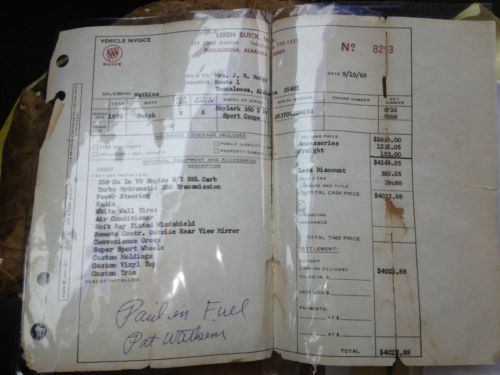 VEHICLE INVOICE
LEIGH BUICK, In
TUSCALOOSA, ALABAMA
No 8213
BUICK
SOLD TO Mrs. J. H.
DATE 9/19/69
ADDRESS Route 1
Tuscaloosa, Alabama 35401
SALESMAN: Watkins
YEAR MAKE MODEL OR SERIES SERIAL NUMBER ENGINE NUMBER KEY NUMBER
1970 Buick 8 Skylark 350 2
Sport Coupe
INSURANCE COVERAGE INCLUDES
FIRE AND THEFT PUBLIC LIABILITY
COLLISION PROPERTY DAMAGE
OPTIONAL EQUIPMENT AND ACCESSORIES
DESCRIPTION
FACTORY INSTALLED:
350 Cu In V8 Engine W/2 BBL Carb
Turbo Hydramatic 350 Transmission
Power Steering
Radio
White Wall Tires
Air Conditioner
Soft Ray Tinted Windshield
Remote Contr. Outside Rear View Mirror
Convenience Group
Super Sport Wheels
Custom Moldings
Custom Vinyl Top
Custom Trim
DEALER INSTALLED:
SELLING PRICE $2859.00
Accessories 1212.05
Freight 153.00
$4224.05
Less Discount 300.05
LICENSE AND TITLE
TOTAL CASH PRICE $4023.88
FINANCING
INSURANCE
TOTAL TIME PRICE
SETTLEMENT:
DEPOSIT
CASH ON DELIVERY $4023.88
TRADE-IN $
LESS LIEN $
PAYMENTS
TOTAL $4023.88
Paid in Full
Pat Watkins